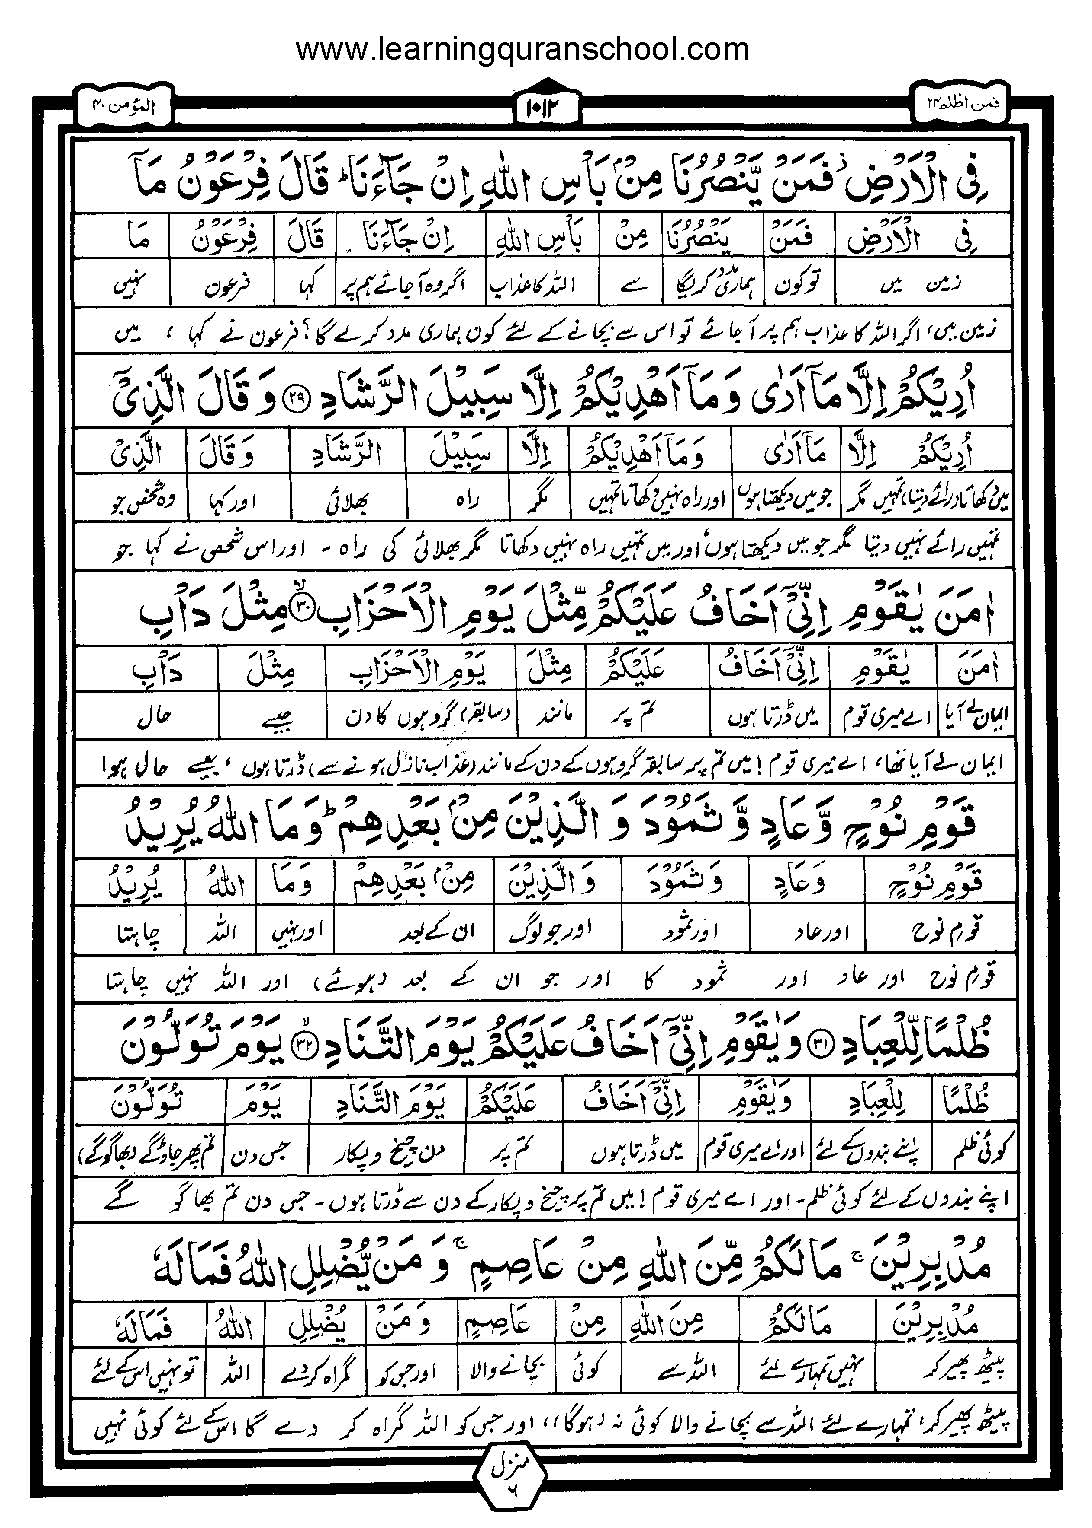 www.learningquranschool.com
فمن اظلم ۲۴
۱۰۱۲
المؤمن ۴۰
فِی الْاَرْضِ ؗ فَمَنْ یَّنْصُرُنَا مِنْۢ بَاْسِ اللّٰهِ اِنْ جَآءَنَا ؕ قَالَ فِرْعَوْنُ مَاۤ
فِی الْاَرْضِ فَمَنْ یَنْصُرُنَا مِنْ بَاْسِ اللّٰهِ اِنْ جَآءَنَا قَالَ فِرْعَوْنُ مَا
زمین میں تو کون ہماری مدد کریگا سے اللہ کا عذاب اگر وہ آجائے ہم پر کہا فرعون نہیں
زمین میں، اگر اللہ کا عذاب ہم پر آ جائے تو اس سے بچانے کے لئے کون ہماری مدد کرے گا؟ فرعون نے کہا ، میں
اُرِیْكُمْ اِلَّا مَاۤ اَرٰی وَمَاۤ اَهْدِیْكُمْ اِلَّا سَبِیْلَ الرَّشَادِ ۲۹ وَقَالَ الَّذِیْۤ
اُرِیْكُمْ اِلَّا مَاۤ اَرٰی وَمَاۤ اَهْدِیْكُمْ اِلَّا سَبِیْلَ الرَّشَادِ وَقَالَ الَّذِیْ
میں دکھاتا (رائے دیتا) تمہیں مگر جو میں دیکھتا ہوں اور راہ نہیں دکھاتا تمہیں مگر راہ بھلائی اور کہا وہ شخص جو
تمہیں رائے نہیں دیتا مگر جو میں دیکھتا ہوں اور میں تمہیں راہ نہیں دکھاتا مگر بھلائی کی راہ - اور اس شخص نے کہا جو
اٰمَنَ یٰقَوْمِ اِنِّیْۤ اَخَافُ عَلَیْكُمْ مِّثْلَ یَوْمِ الْاَحْزَابِ ۳۰ مِثْلَ دَاْبِ
اٰمَنَ یٰقَوْمِ اِنِّیْۤ اَخَافُ عَلَیْكُمْ مِثْلَ یَوْمِ الْاَحْزَابِ مِثْلَ دَاْبِ
ایمان لے آیا اے میری قوم میں ڈرتا ہوں تم پر مانند (سابقہ) گروہوں کا دن جیسے حال
ایمان لے آیا تھا، اے میری قوم! میں تم پر سابقہ گروہوں کے دن کے مانند (عذاب نازل ہونے سے) ڈرتا ہوں ، جیسے حال ہوا
قَوْمِ نُوْحٍ وَّعَادٍ وَّثَمُوْدَ وَالَّذِیْنَ مِنْۢ بَعْدِهِمْ ؕ وَمَا اللّٰهُ یُرِیْدُ
قَوْمِ نُوْحٍ وَعَادٍ وَثَمُوْدَ وَالَّذِیْنَ مِنْۢ بَعْدِهِمْ وَمَا اللّٰهُ یُرِیْدُ
قوم نوح اور عاد اور ثمود اور جو لوگ ان کے بعد اور نہیں اللہ چاہتا
قوم نوح اور عاد اور ثمود کا اور جو ان کے بعد (ہوئے) اور اللہ نہیں چاہتا
ظُلْمًا لِّلْعِبَادِ ۳۱ وَیٰقَوْمِ اِنِّیْۤ اَخَافُ عَلَیْكُمْ یَوْمَ التَّنَادِ ۳۲ یَوْمَ تُوَلُّوْنَ
ظُلْمًا لِلْعِبَادِ وَیٰقَوْمِ اِنِّیْۤ اَخَافُ عَلَیْكُمْ یَوْمَ التَّنَادِ یَوْمَ تُوَلُّوْنَ
کوئی ظلم اپنے بندوں کے لئے اور اے میری قوم میں ڈرتا ہوں تم پر دن چیخ و پکار جس دن تم پھر جاؤ گے (بھاگو گے)
اپنے بندوں کے لئے کوئی ظلم - اور اے میری قوم! میں تم پر چیخ و پکار کے دن سے ڈرتا ہوں - جس دن تم بھاگو گے
مُدْبِرِیْنَ ۚ مَا لَكُمْ مِّنَ اللّٰهِ مِنْ عَاصِمٍ ۚ وَمَنْ یُّضْلِلِ اللّٰهُ فَمَا لَهٗ
مُدْبِرِیْنَ مَا لَكُمْ مِنَ اللّٰهِ مِنْ عَاصِمٍ وَمَنْ یُضْلِلِ اللّٰهُ فَمَا لَهٗ
پیٹھ پھیر کر نہیں تمہارے لئے اللہ سے کوئی بچانے والا اور جس کو گمراہ کر دے اللہ تو نہیں اس کے لئے
پیٹھ پھیر کر، تمہارے لئے اللہ سے بچانے والا کوئی نہ (ہوگا)، اور جس کو اللہ گمراہ کر دے گا اس کے لئے کوئی نہیں
منزل ۶